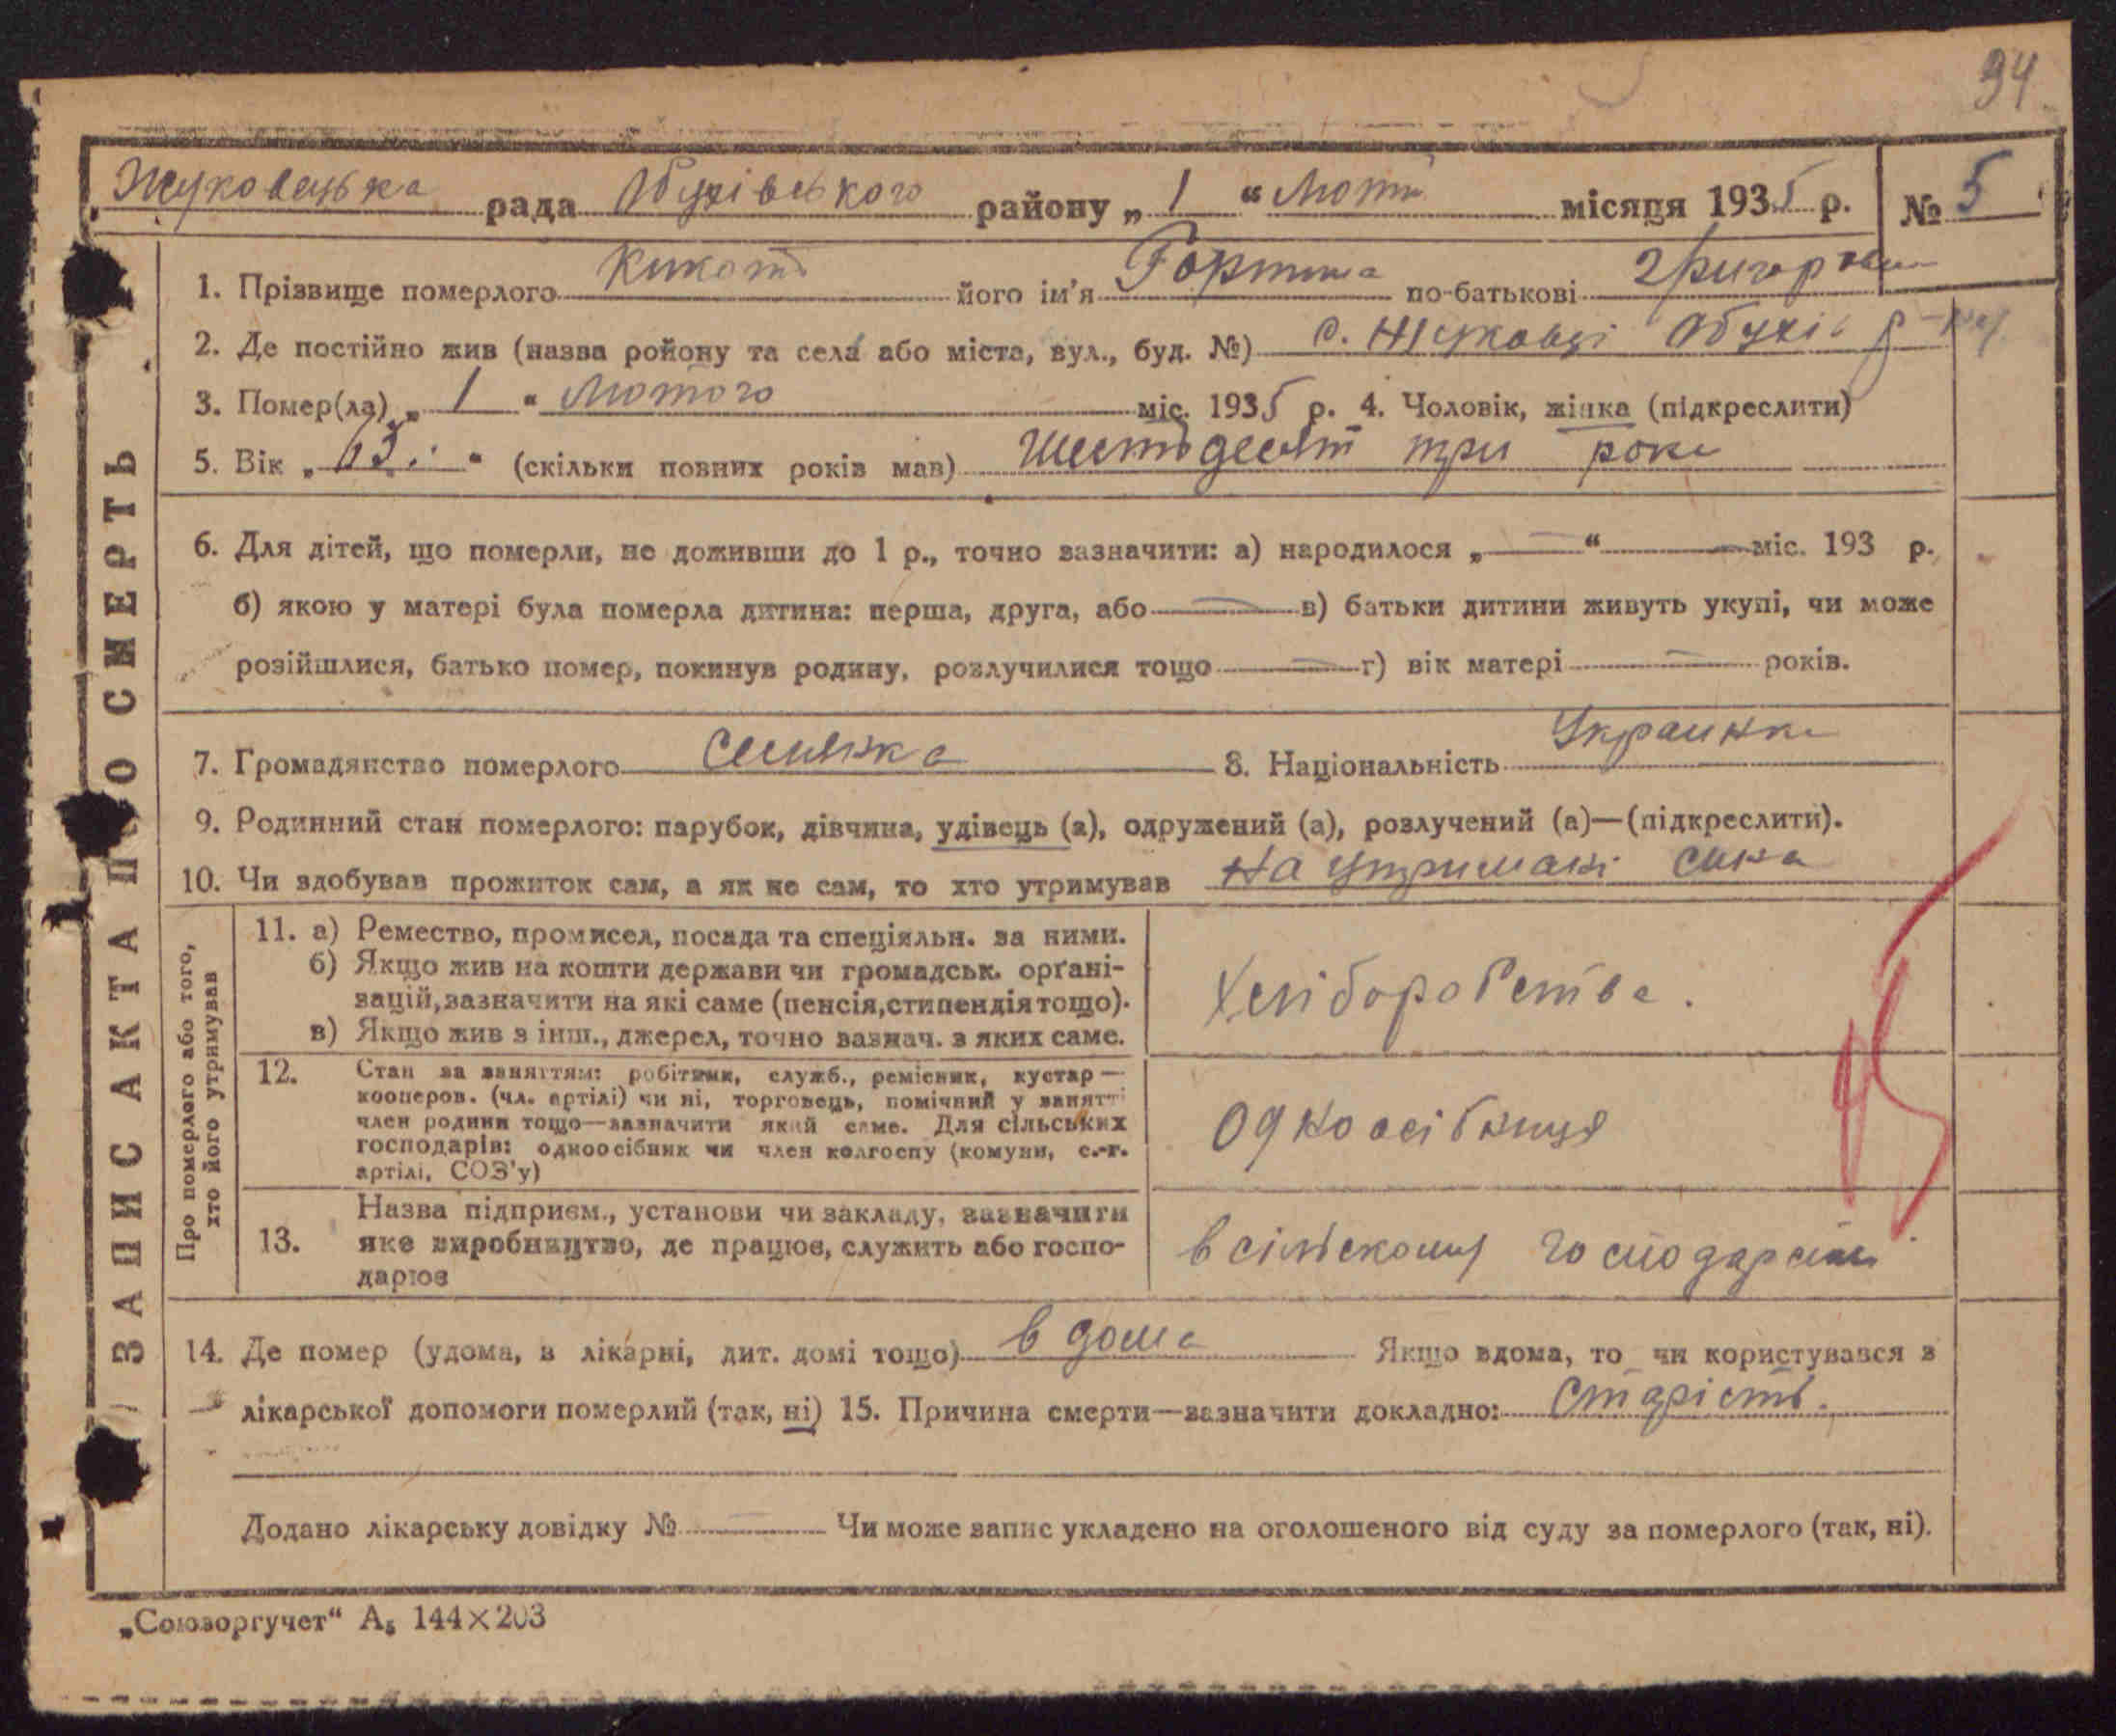 94
Жуковецька рада Обухівського району „ 1 “ Лютий місяця 1935 р. № 5
1. Прізвище померлого Кикоть його ім'я по-батькові Григоровна
2. Де постійно жив (назва ройону та села або міста, вул., буд. №) с. Жуковці Обухів р-ну
3. Помер(ла) „ 1 “ Лютого міс. 1935 р. 4. Чоловік, жінка (підкреслити)
5. Вік „ 63 “ (скільки повних років мав) Шестьдесят три роки
6. Для дітей, що померли, не доживши до 1 р., точно зазначити: а) народилося „ — “ — міс. 193 р.
б) якою у матері була померла дитина: перша, друга, або — в) батьки дитини живуть укупі, чи може
розійшлися, батько помер, покинув родину, розлучилися тощо — г) вік матері — років.
7. Громадянство померлого Селянка 8. Національність Украинка
9. Родинний стан померлого: парубок, дівчина, удівець (а), одружений (а), розлучений (а)—(підкреслити).
10. Чи здобував прожиток сам, а як не сам, то хто утримував На утримані сина
ЗАПИС АКТА ПРО СМЕРТЬ
Про померлого або того,
хто його утримував
11. а) Ремество, промисел, посада та спеціяльн. за ними.
б) Якщо жив на кошти держави чи громадськ. орґані-
зацій, зазначити на які саме (пенсія, стипендія тощо).
в) Якщо жив з інш., джерел, точно вазнач. з яких саме.
Хліборобства.
12. Стан за заняттям: робітник, служб., ремісник, кустар—
кооперов. (чл. артілі) чи ні, торговець, помічний у занятті
член родини тощо—зазначити який саме. Для сільських
господарів: одноосібник чи член колгоспу (комуни, с.-г.
артілі, СОЗ'у)
Одноосібниця
13. Назва підприєм., установи чи закладу, зазначити
яке виробництво, де працює, служить або госпо-
дарює
в сільскому господарстві
14. Де помер (удома, в лікарні, дит. домі тощо) в дома Якщо вдома, то чи користувався з
лікарської допомоги померлий (так, ні) 15. Причина смерти—зазначити докладно: Старість.
Додано лікарську довідку № — Чи може запис укладено на оголошеного від суду за померлого (так, ні).
„Союзоргучет“ А₅ 144×203